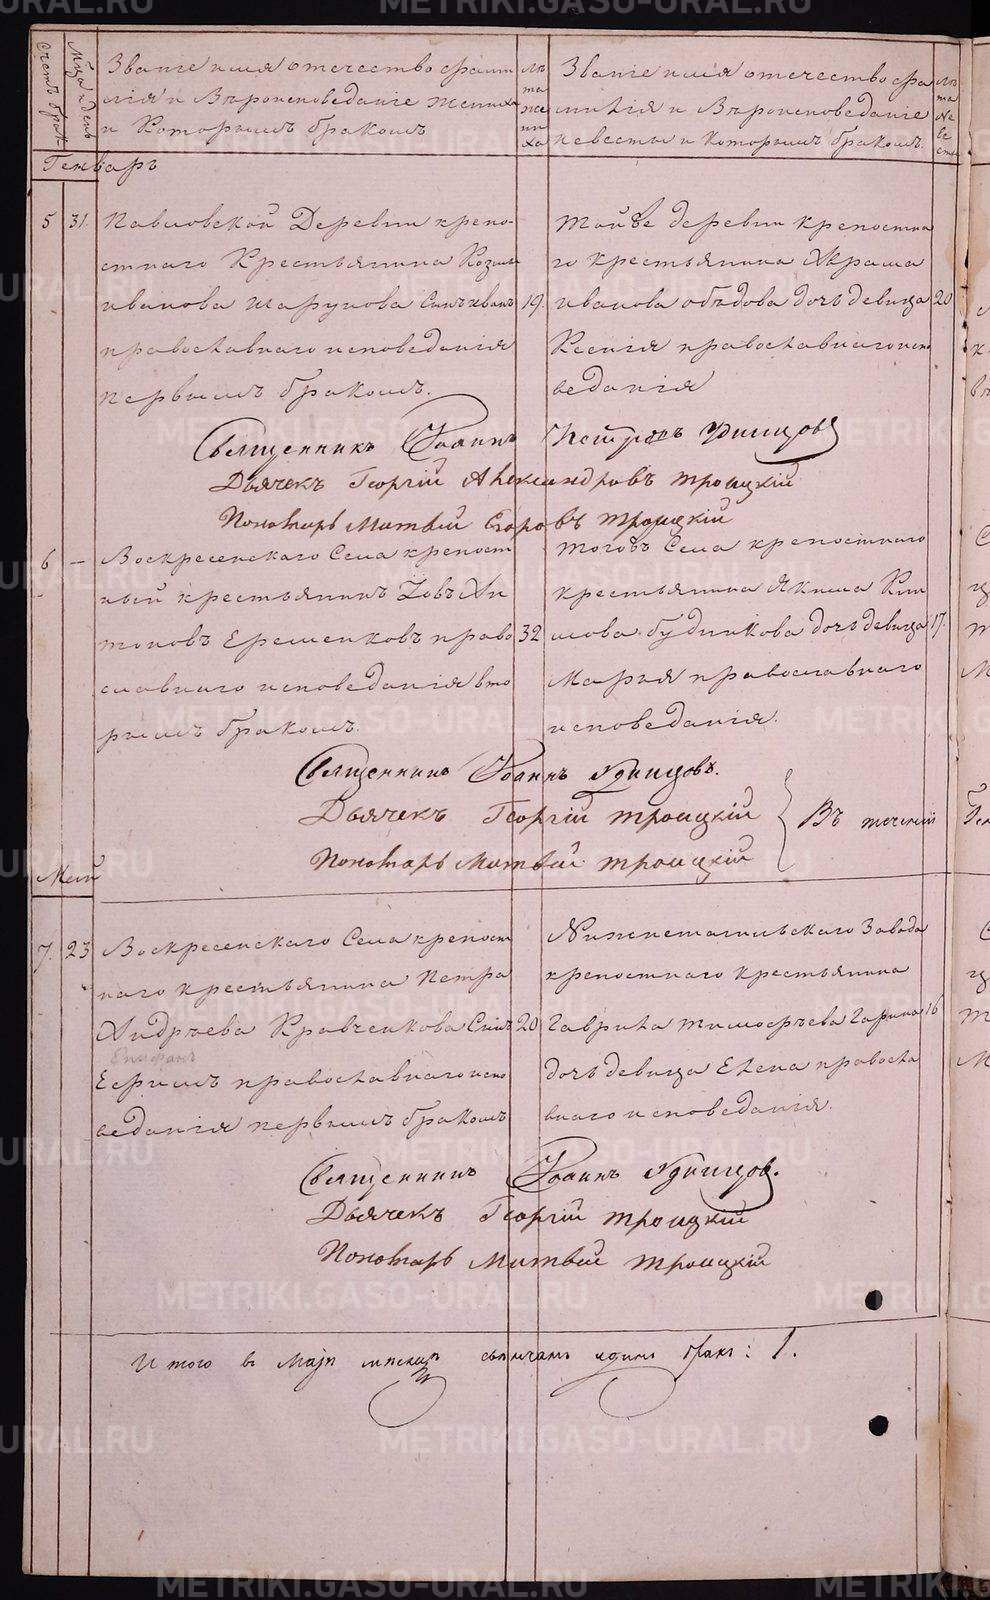 Счетъ брак
Мца и день
Званiе имя отечество фами
лiя и Вѣроисповеданiе жениха
и Которымъ бракомъ
Лѣ
та
же
ни
ха
Званiе имя отечество фа
милiя и Вѣроисповеданiе
невесты и Которымъ бракомъ.
Лѣ
та
Не
ве
сты
Генваръ
5 31. Павловской Деревни крепо-
стнаго Крестьянина Козмы
иванова Шарунова Сынъ иванъ 19.
православнаго исповеданiя
первымъ бракомъ.
Той же деревни крепостна
го крестьянина Абрама
иванова обѣдова дочь девица 20
Ксенiя православнаго испо
веданiя
Священникъ Iоаннъ Петровъ Удинцовъ
Дьячекъ Георгiй Александровъ Троицкiй
Пономарь Матвѣй Егоровъ Троицкiй
6 — Воскресенскаго Села крепост
ный крестьянинъ Iовъ Ан
тоновъ Еременковъ право 32
славнаго исповеданiя вто
рымъ бракомъ.
тогожъ Села крепостнаго
крестьянина Якима Кли
мова будникова дочь девица 17.
Марья православнаго
исповеданiя.
Священникъ Iоаннъ Удинцовъ.
Дьячекъ Георгiй Троицкiй
Пономарь Матвѣй Троицкiй
Въ теченiи
Маiй
7. 23 Воскресенскаго Села крепост
наго крестьянина Петра
Андрѣева Кравченкова Сынъ 20
Епифанъ
Ефримъ православнаго испо
веданiя первымъ бракомъ
Нижнетагильскаго Завода
крепостнаго крестьянина
Гаврила тимофѣева Гарина 16
дочь девица Елена правосла
внаго исповеданiя.
Священникъ Iоаннъ Удинцов.
Дьячекъ Георгiй Троицкiй
Пономарь Матвѣй Троицкiй
Итого в маiи месяцѣ свѣнчанъ одинъ бракъ: 1.
METRIKI.GASO-URAL.RU